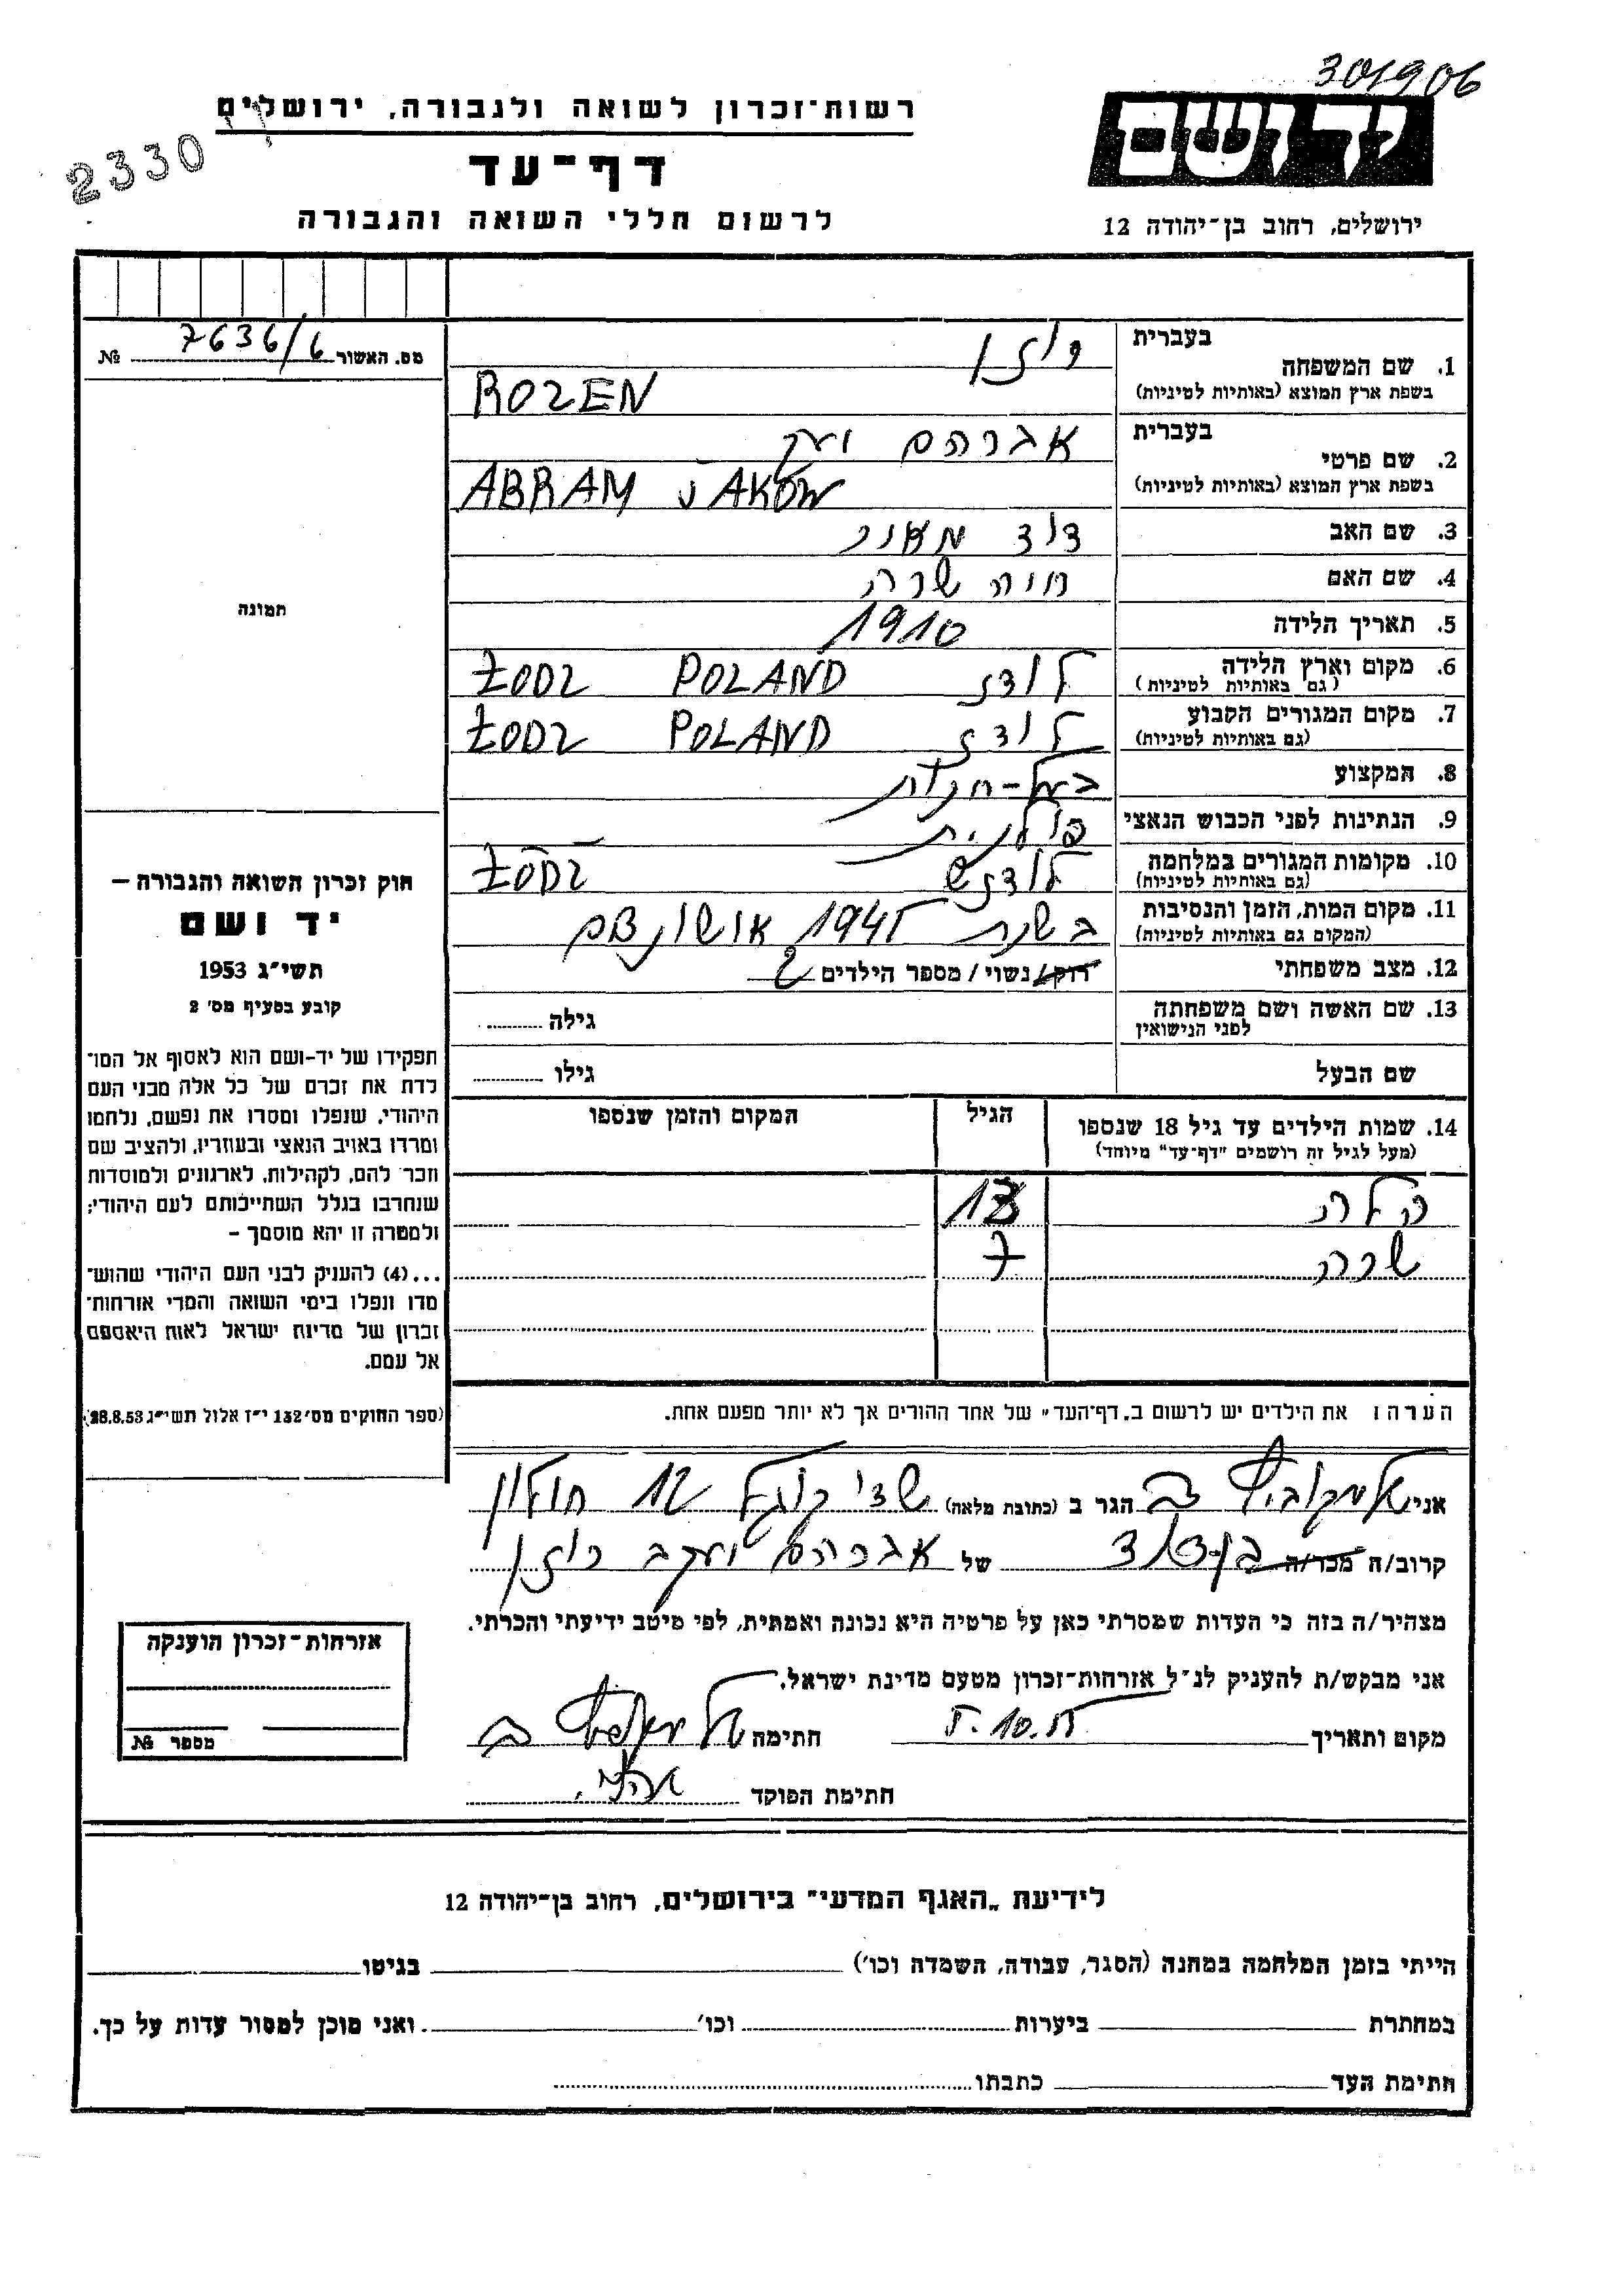 301906
רשות־זכרון לשואה ולגבורה, ירושלים
2330
יד ושם
דף־עד
ירושלים, רחוב בן־יהודה 12
לרשום חללי השואה והגבורה
מס. האשור 7636/6 №
1. שם המשפחה בעברית רוזן
בשפת ארץ המוצא (באותיות לטיניות) ROZEN
2. שם פרטי בעברית אברהם יעקב
בשפת ארץ המוצא (באותיות לטיניות) ABRAM JAKOW
3. שם האב דוד מאיר
4. שם האם חיה שרה
5. תאריך הלידה 1910
6. מקום וארץ הלידה לודז ŁODZ POLAND
(גם באותיות לטיניות)
7. מקום המגורים הקבוע לודז ŁODZ POLAND
(גם באותיות לטיניות)
8. המקצוע בעל-חנות
9. הנתינות לפני הכבוש הנאצי פולנית
10. מקומות המגורים במלחמה לודזש ŁODZ
(גם באותיות לטיניות)
11. מקום המות, הזמן והנסיבות בשנת 1945 אושוויצים
(המקום גם באותיות לטיניות)
12. מצב משפחתי רוק/נשוי/מספר הילדים 2
13. שם האשה ושם משפחתה לפני הנישואין גילה
שם הבעל גילו
14. שמות הילדים עד גיל 18 שנספו הגיל המקום והזמן שנספו
(מעל לגיל זה רושמים "דף־עד" מיוחד)
הלה 13
שרה 7
תמונה
חוק זכרון השואה והגבורה –
יד ושם
תשי״ג 1953
קובע בסעיף מס׳ 2
תפקידו של יד-ושם הוא לאסוף אל המו־
לדת את זכרם של כל אלה מבני העם
היהודי, שנפלו ומסרו את נפשם, נלחמו
ומרדו באויב הנאצי ובעוזריו, ולהציב שם
וזכר להם, לקהילות, לארגונים ולמוסדות
שנחרבו בגלל השתייכותם לעם היהודי;
ולמטרה זו יהא מוסמך –
...(4) להעניק לבני העם היהודי שהוש־
מדו ונפלו בימי השואה והמרי אזרחות־
זכרון של מדינת ישראל לאות היאספם
אל עמם.
(ספר החוקים מס׳ 132 י״ז אלול תשי״ג 28.8.53)
הערה: את הילדים יש לרשום ב„דף־העד״ של אחד ההורים אך לא יותר מפעם אחת.
אני הגר ב (כתובת מלאה) 12 חולון
קרוב/ה מכר/ה בן-דוד של אברהם יעקב רוזן
מצהיר/ה בזה כי העדות שמסרתי כאן על פרטיה היא נכונה ואמתית, לפי מיטב ידיעתי והכרתי.
אני מבקש/ת להעניק לנ״ל אזרחות־זכרון מטעם מדינת ישראל.
מקום ותאריך חתימה
חתימת הפוקד
אזרחות־זכרון הוענקה
מספר №
לידיעת „האגף המדעי״ בירושלים, רחוב בן־יהודה 12
הייתי בזמן המלחמה במחנה (הסגר, עבודה, השמדה וכו׳) בגיטו
במחתרת ביערות וכו׳ ואני מוכן למסור עדות על כך.
חתימת העד כתבתו